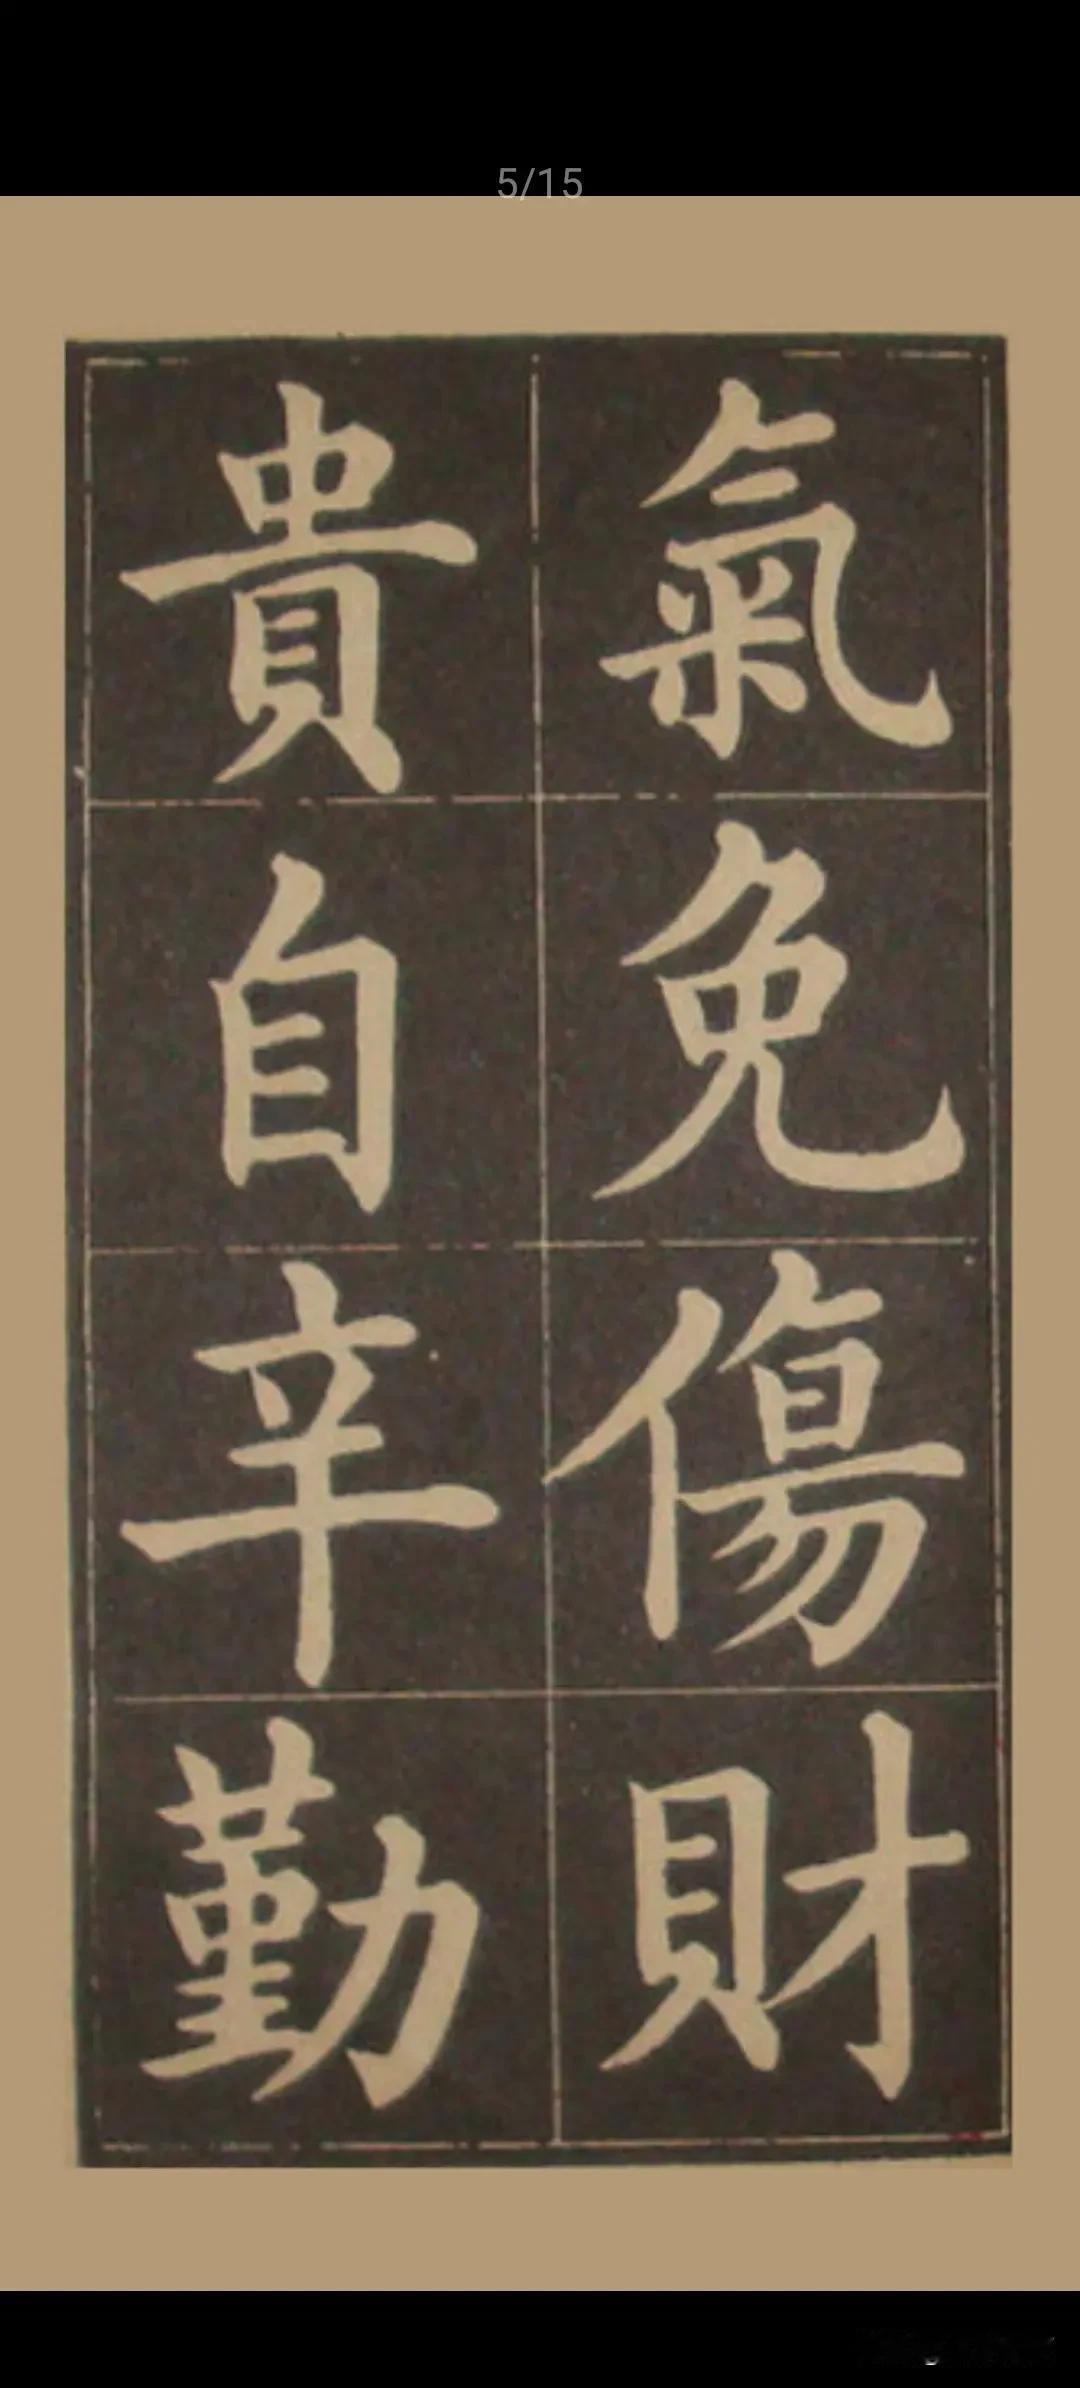 5/15
氣免傷財
貴自辛勤